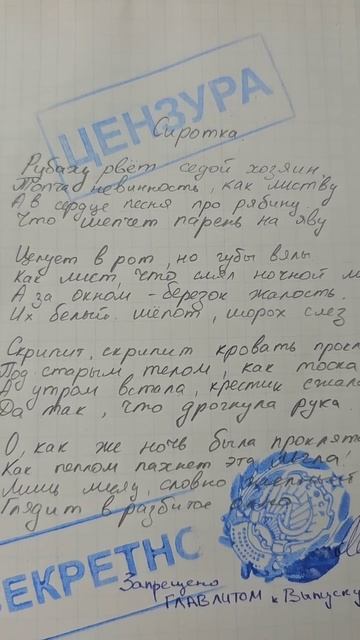 ЦЕНЗУРА
Сиротка
Рубаху рвёт седой хозяин
Топча невинность, как листву
А в сердце песня про рябину
Что шепчет парень на яву
Целует в рот, но губы вялы
Как лист, что смял ночной
А за окном - березок жалость.
Их белый шёпот, шорох слез
Скрипит, скрипит кровать
Под старым телом, как тоска
А утром встала, крестик
Да так, что дрогнула рука.
О, как же ночь была
Как пеплом пахнет эта мгла!
Лишь месяц, словно
Глядит в разбитое
СЕКРЕТНО
Запрещено
ГЛАВЛИТОМ к Выпуску